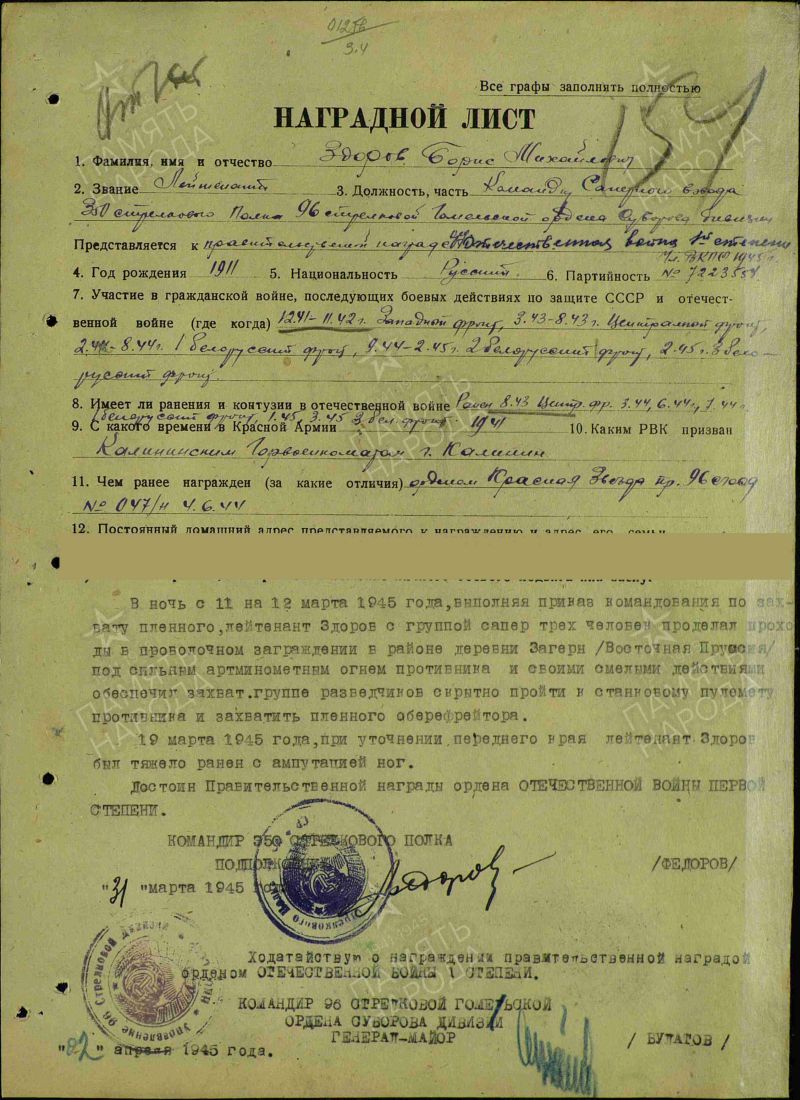 0125в
3.4
Все графы заполнять полностью
154
НАГРАДНОЙ ЛИСТ
1. Фамилия, имя и отчество Здоров Борис Михайлович
2. Звание Лейтенант 3. Должность, часть Командир Саперного взвода
350 стрелкового Полка 96 стрелковой Гомельской ордена Суворова дивизии
Представляется к правительственной награде "Отечественная война 1й степени"
ВКП(б) 1945 г.
4. Год рождения 1911 5. Национальность Русский. 6. Партийность № 7223554
7. Участие в гражданской войне, последующих боевых действиях по защите СССР и отечест-
венной войне (где когда) 12.41-11.42 г. Западной фронт, 3.43-8.43 г. Центральной фронт,
2.44-8.44 г. 1 белорусский фронт, 9.44-2.45 г. 2 белорусский фронт, 2.45 г. 3 бело-
русский фронт.
8. Имеет ли ранения и контузии в отечественной войне Ранен 8.43 Центр. фр. 3.44, 6.44 г., 7.44 г.
1 белорусский фронт, 1.45, 3.45 3 бел. фронт.
9. С какого времени в Красной Армии 1941 10. Каким РВК призван
Калининским Горвоенкоматом г. Калинин
11. Чем ранее награжден (за какие отличия) орденом Красная Звезда пр. 96 стр.
№ 047/н 4.6.44
12. Постоянный домашний адрес представляемого к награждению и адрес его семьи
В ночь с 11 на 12 марта 1945 года, выполняя приказ командования по зах-
вату пленного, лейтенант Здоров с группой сапер трех человек проделал прохо-
ды в проволочном заграждении в районе деревни Загерн /Восточная Пруссия/
под сильным артминометным огнем противника и своими смелыми действиями
обеспечил захват.группе разведчиков скрытно пройти к станковому пулемету
противника и захватить пленного оберефрейтора.
19 марта 1945 года, при уточнении переднего края лейтенант Здоров
был тяжело ранен с ампутацией ног.
Достоин Правительственной награды ордена ОТЕЧЕСТВЕННОЙ ВОЙНЫ ПЕРВОЙ
СТЕПЕНИ.
КОМАНДИР 350 СТРЕЛКОВОГО ПОЛКА
ПОДПОЛКОВНИК /ФЕДОРОВ/
"31 "марта 1945 года
Ходатайствую о награждении правительственной наградой
орденом ОТЕЧЕСТВЕННОЙ ВОЙНЫ I СТЕПЕНИ.
КОМАНДИР 96 СТРЕЛКОВОЙ ГОМЕЛЬСКОЙ
ОРДЕНА СУВОРОВА ДИВИЗИИ
ГЕНЕРАЛ-МАЙОР / БУЛАТОВ /
"02" апреля 1945 года.
Управление 96 Стрелковой дивизии
ПАМЯТЬ НАРОДА